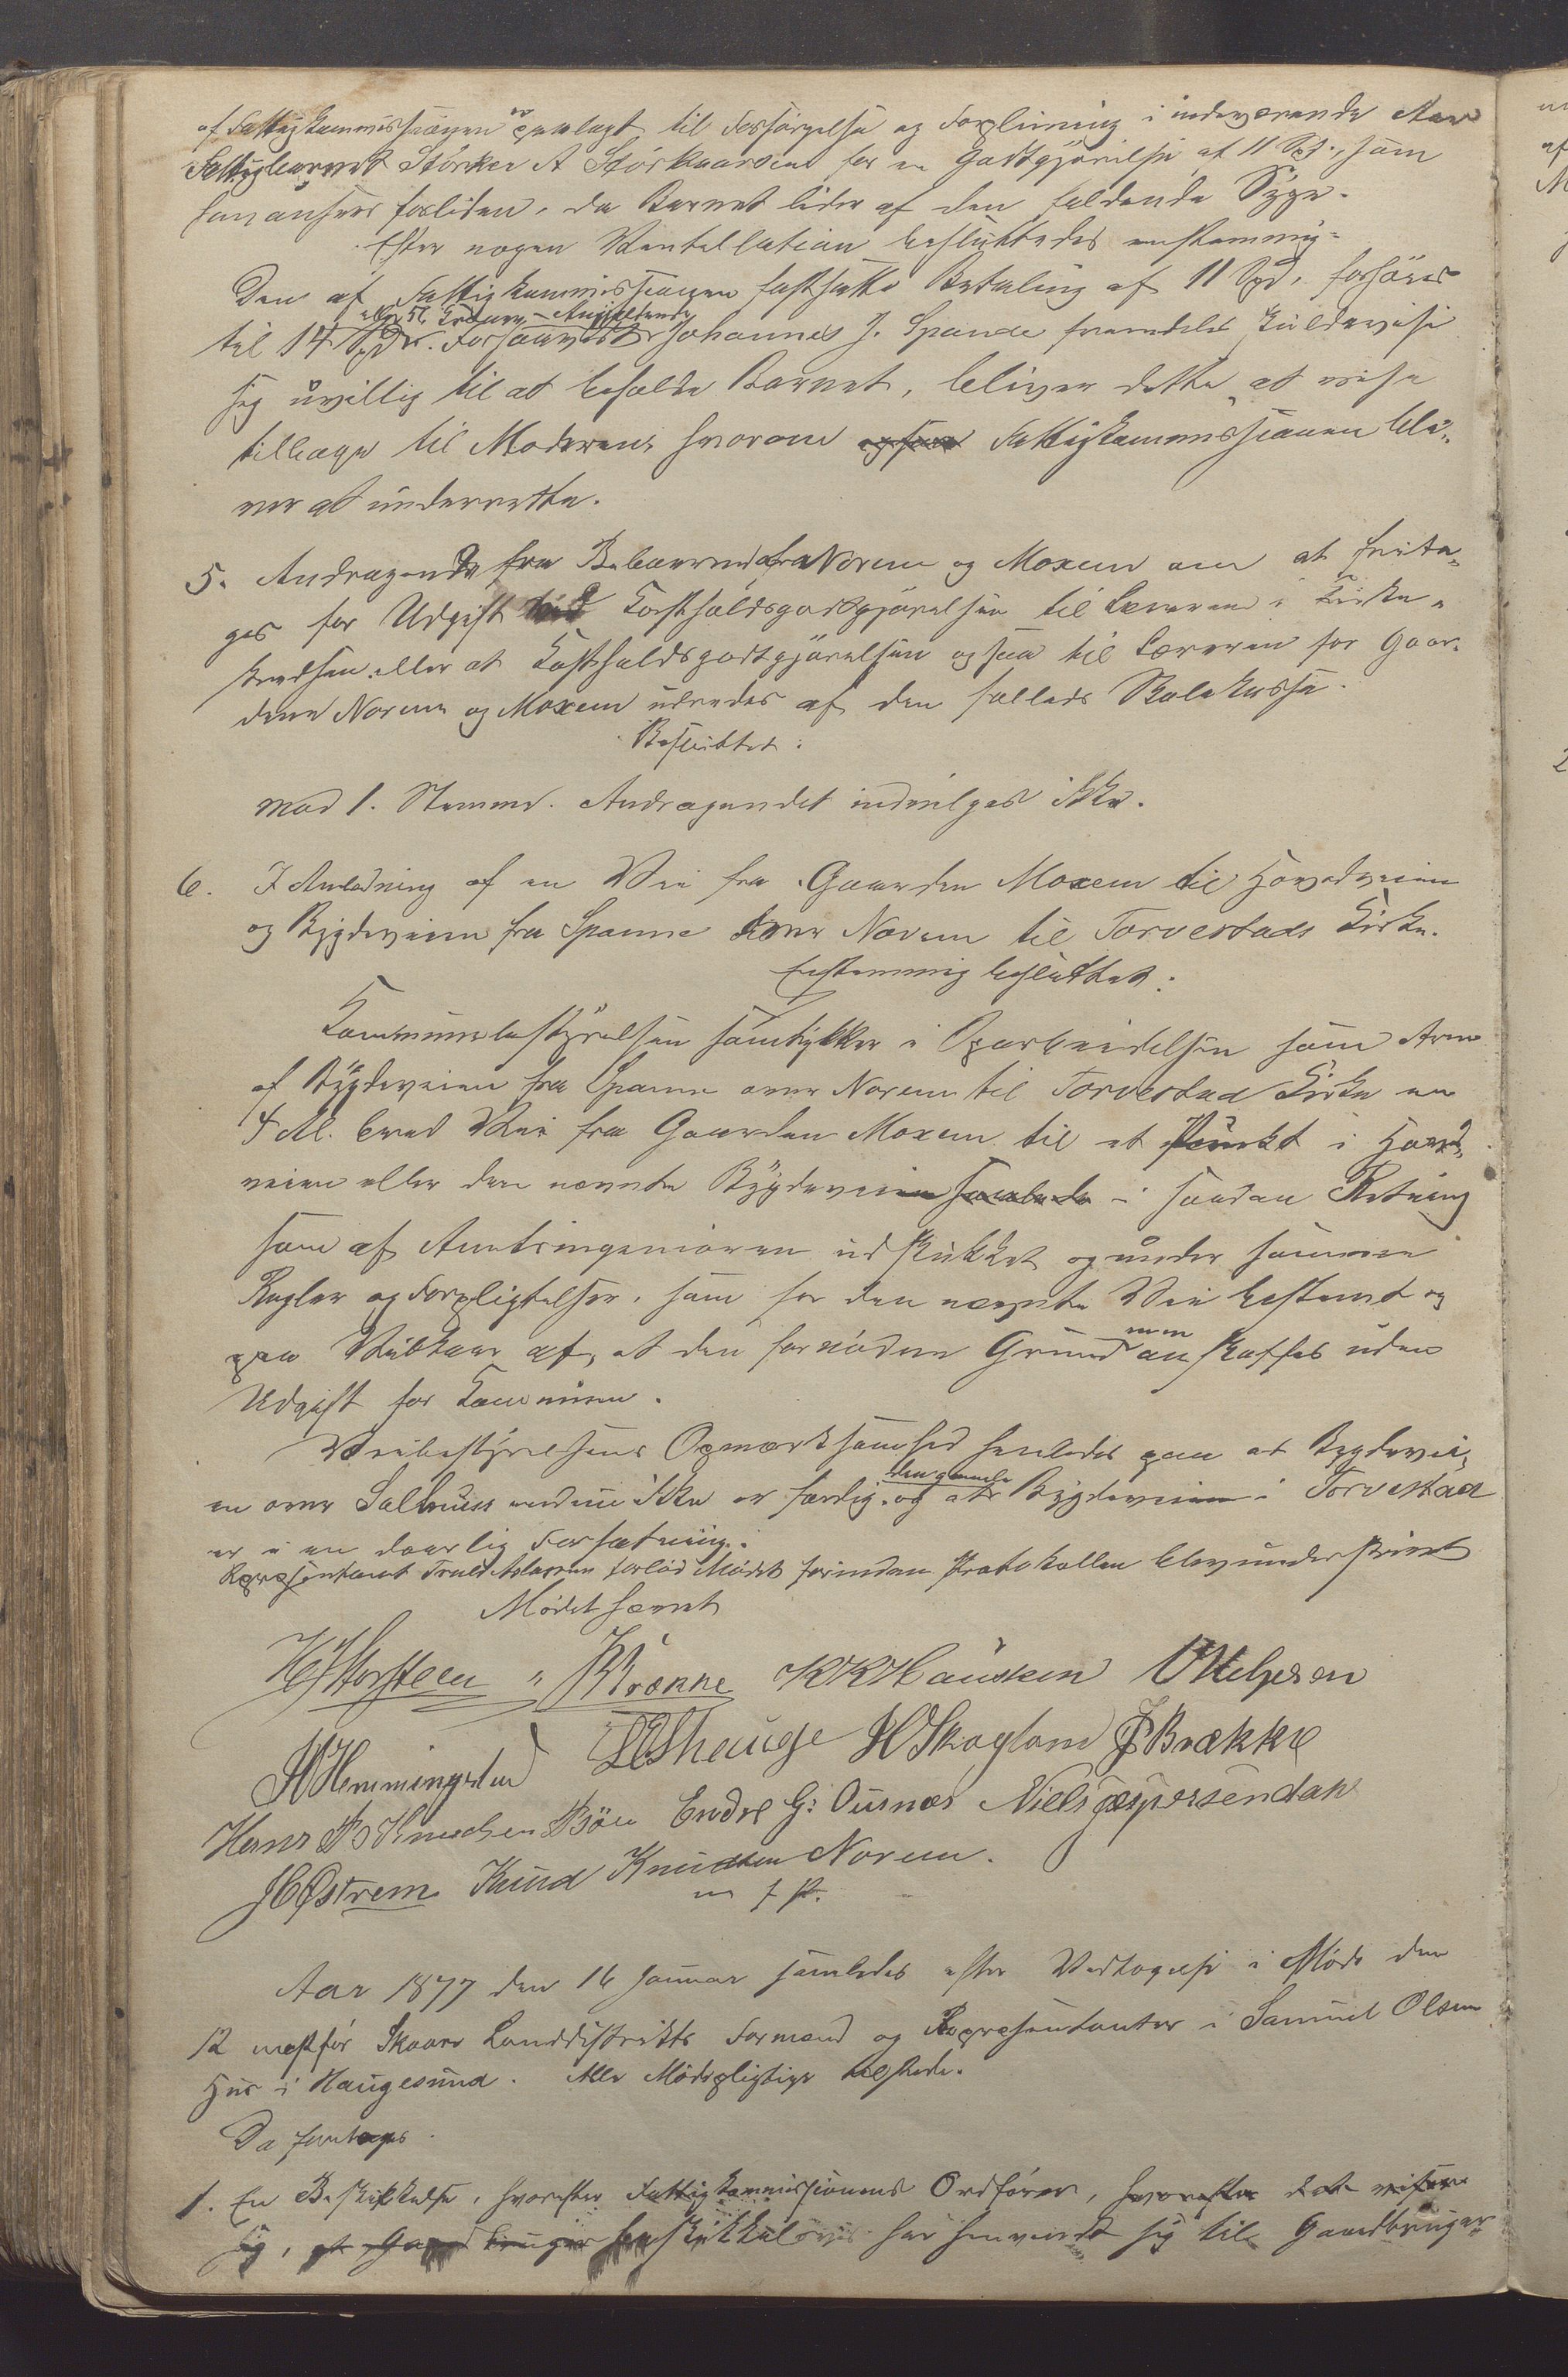 af Fattigkommissionen er paalagt til Forsørgelse og Forpleining i indeværende Aar
Fattigbarnet Störker A Störkaarsen for en Godtgjörelse af 11 Spd., som
han anseer forliden, da Barnet lider af den faldende Syge.
Efter nogen Ventellation besluttedes enstemmig:
Den af Fattigkommissionen fastsatte Betaling af 11 Spd. forhöies
eller 56 Kroner. – Angjeldende
til 14 Spd. Forsaavidt Johannes J. Spanne fremdeles skulde vise
sig uvillig til at beholde Barnet, bliver dette at vise
tilbage til Moderen, hvorom Fattigkommissionen bli-
ver at underrette.
5. Andragende fra Beboerne fra Norem og Moxem om at frita-
ges for Udgift ved Kostholdsgodtgjörelsen til Læreren i Kirke-
kredsen eller at Kostholdsgodtgjörelsen ogsaa til Læreren for Gaar-
dene Norem og Moxem udredes af den fælleds Skolekasse.
Besluttet:
mod 1. Stemme. Andragendet indvilges ikke.
6. I Anledning af en Vei fra Gaarden Moxem til Hovedveien
og Bygdeveien fra Spanne over Norem til Torvestads Kirke.
Enstemmig besluttet:
Kommunebestyrelsen samtykker i Oparbeidelsen som Arm
af Bygdeveien fra Spanne over Norem til Torvestad Kirke en
4 Al. bred Vei fra Gaarden Moxem til et Punkt i Hoved-
veien eller den nævnte Bygdevei i saadan Retning
som af Amtsingeniøren udstukket og under samme
Regler og Forpligtelser, som for den nævnte Vei bestemt og
paa Vilkaar af, at den fornödne Grund anskaffes uden
Udgift for Kommunen.
Veibestyrelsens Opmærksomhed henledes paa at Bygdevei-
en over Salhuus endnu ikke er færdig og at den gamle Bygdevei i Torvestad
er i en daarlig Forfatning.
Repræsentant Truls Aslassen forlod Mödet forinden Protokollen blev underskrevet
Mödet hævet
H Thorsteen B Vrönne K K Hausken O Helgesen
H Hemmingstad L E Shauge H Skoglam J Brække
Hans B Knudsen Böe Endre G: Ousnes Niels Jespersen dah
J C Østrem Knud Knudsen Norem.
m f p.
Aar 1877 den 16 Januar samledes efter Vedtagelse i Möde den
12 næstfør Skaare Landdistrikts Formænd og Repræsentanter i Samuel Olsens
Hus i Haugesund. Alle Mödepligtige tilstede.
Da foretoges
1. En Beskikkelse, hvorefter Fattigkommissionens Ordförer, hvorefter det viser
sig, at Gaardbruger beskikkelsesvis har henvendt sig til Gaardbruger